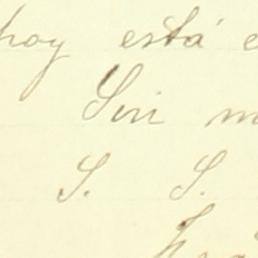 hoy está
Sin
S. S.